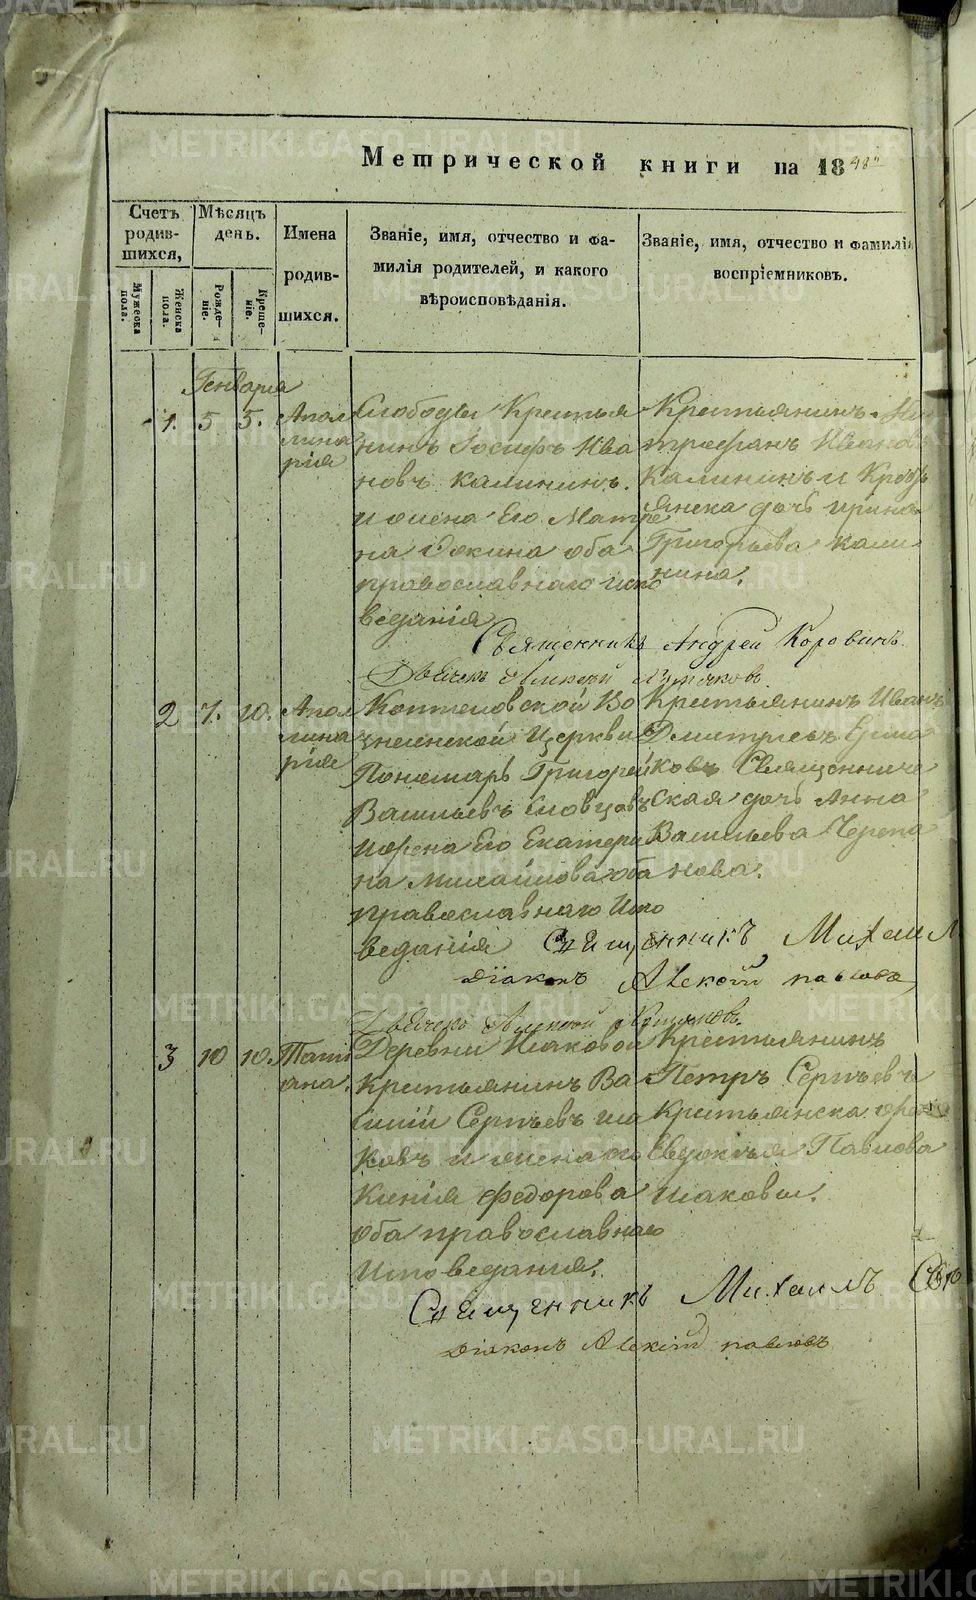 Метрической книги на 1848
Счетъ родившихся,
Мѣсяцъ день.
Имена родившихся.
Званіе, имя, отчество и фамилія родителей, и какого вѣроисповѣданія.
Званіе, имя, отчество и фамилія воспріемниковъ.
Мужеска пола.
Женска пола.
Рожденіе.
Крещеніе.
Генваря
1. 5 5.
Апол
лина
рія
Слободы Крестья
нинъ Іосифъ Ива
новъ Калининъ.
и жена Его Матре
на Фокина оба
православнаго испо
веданія
Крестьянинъ Ми
трофанъ Ивановъ
Калининъ и Кресть
янска дочь Ирина
Григорьева Кали
нина.
Священникъ Андрей Коровинъ
Дьячекъ Алексей
2 7. 10.
Апол
лина
рія
Коптеловской Во
знесенской Церкви
Пономарь Григорей
Васильевъ Словцовъ
и жена Его Екатери
на Михайлова оба
православнаго Испо
веданія
Крестьянинъ Иванъ
Дмитріевъ Ерма
ковъ Священниче
ская дочь Анна
Васильева Черепа
нова.
Священникъ Михаил
діаконъ Алексій павловъ
Дьячекъ Алексей
3 10 10.
Тати
ана.
Деревни Исаковой
Крестьянинъ Ва
силій Сергѣевъ Иса
ковъ и жена его
Ксенія Федорова
оба православнаго
Исповеданія.
Крестьянинъ
Петръ Сергѣевъ
Крестьянска жена
Евдокія Павлова
Исаковы.
Священникъ Михаилъ
діаконъ Алексій павловъ
METRIKI.GASO-URAL.RU